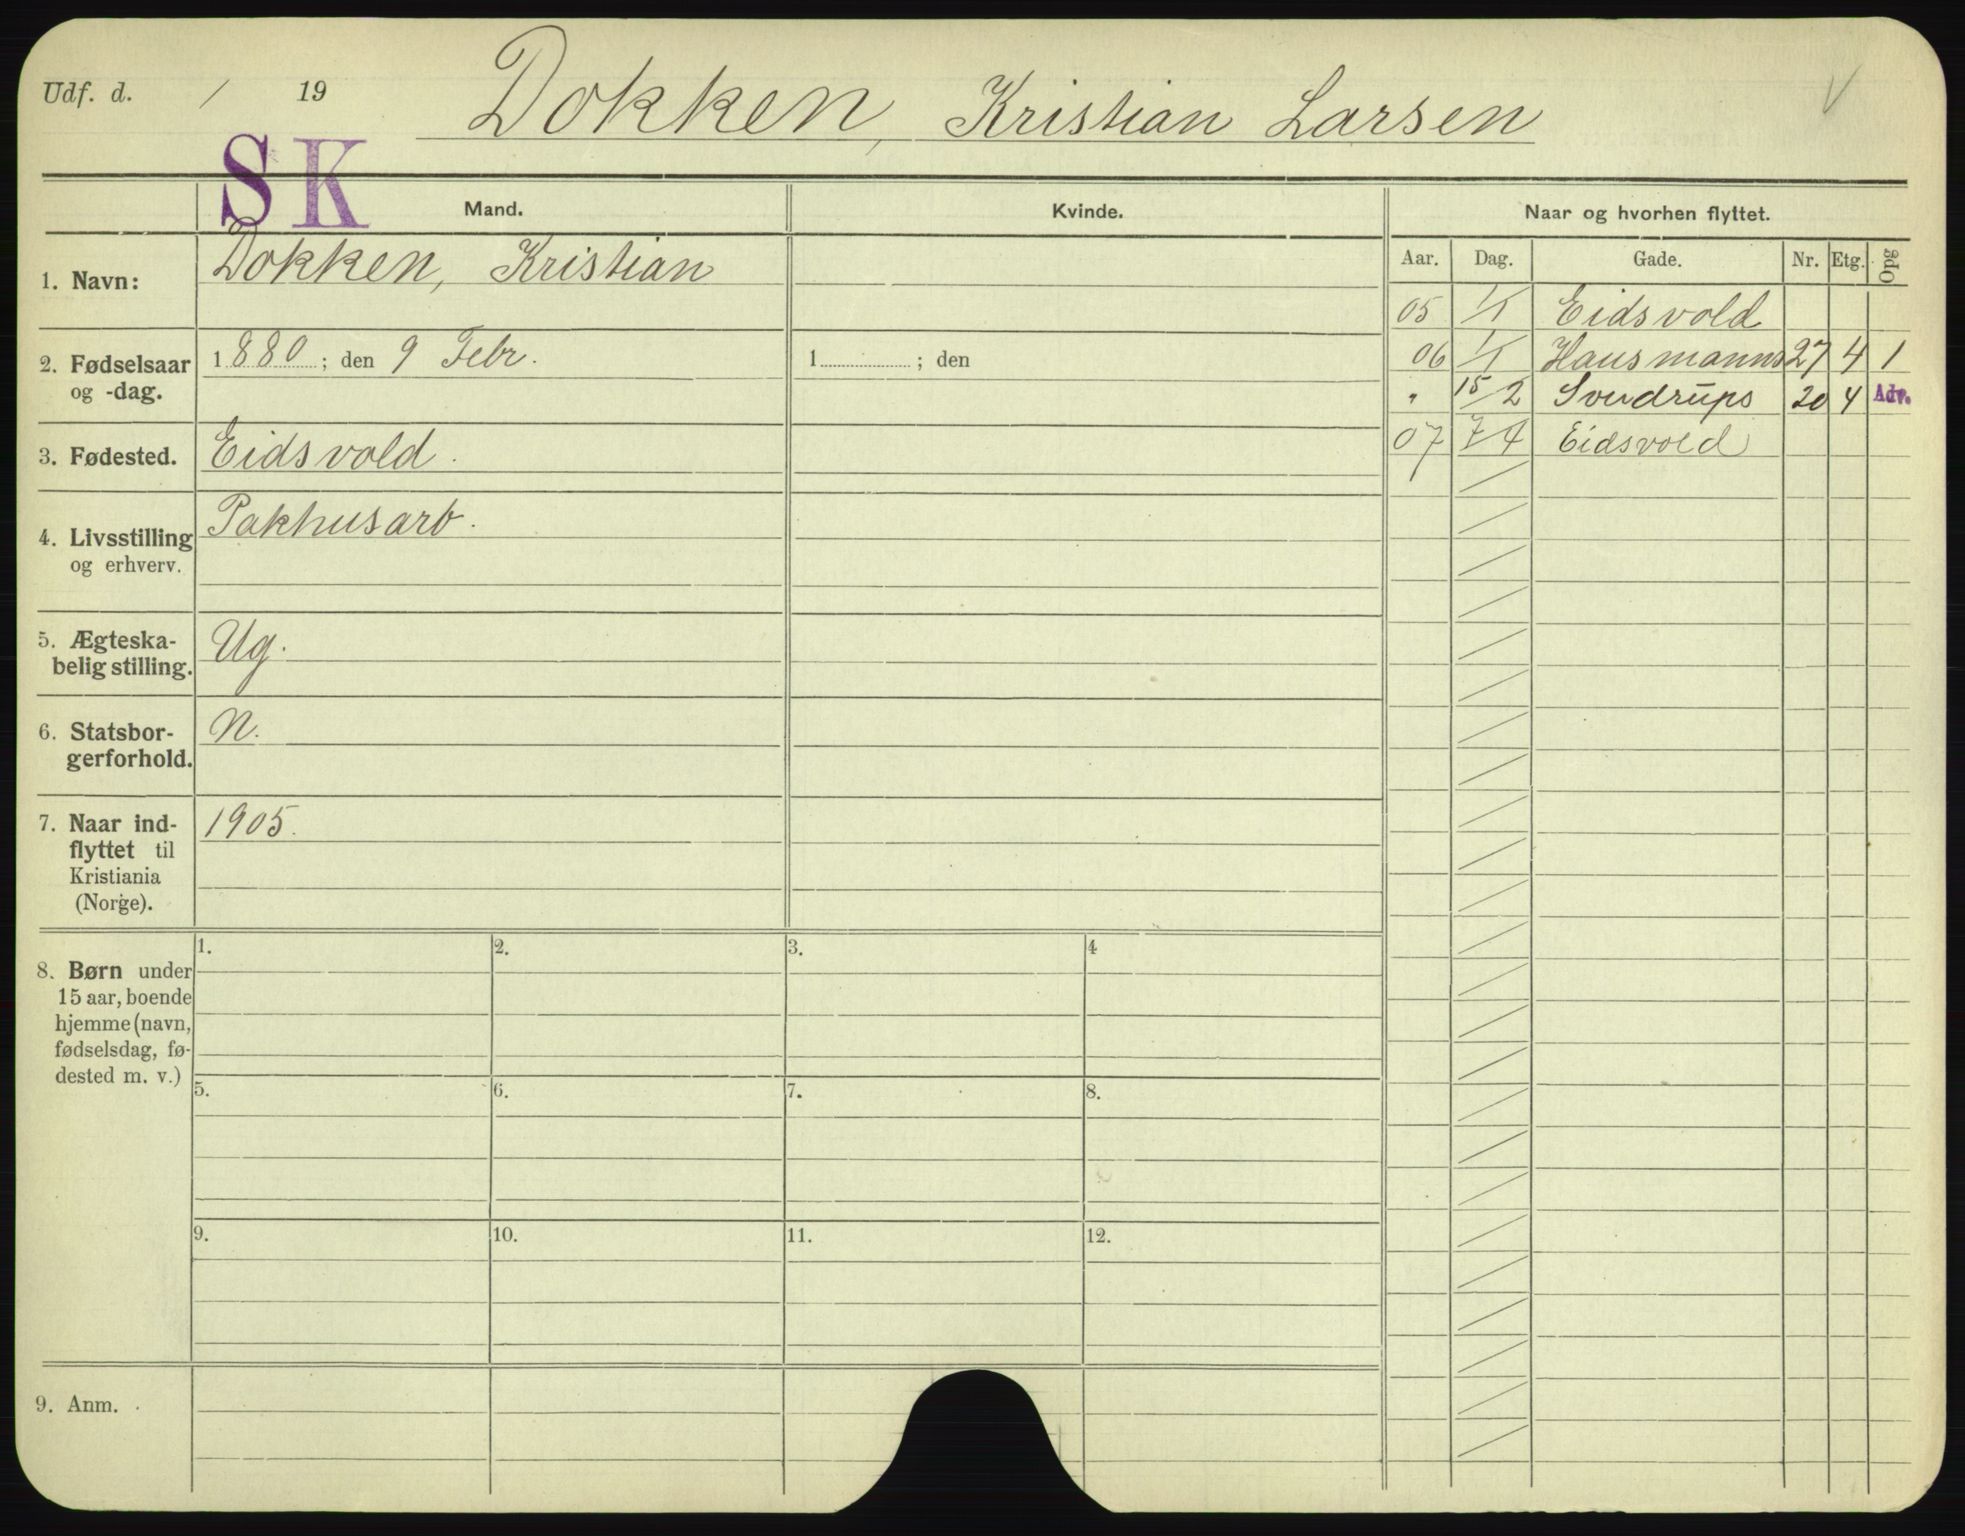 Udf. d. / 19 Dokken, Kristian Larsen V
SK
Mand. Kvinde. Naar og hvorhen flyttet.
Aar. Dag. Gade. Nr. Etg. Opg
1. Navn: Dokken, Kristian
05 1/1 Eidsvold
06 1/1 Hausmanns 27 4 1
" 15/2 Sverdrups 20 4 Adv.
07 7/4 Eidsvold
2. Fødselsaar og -dag. 1880; den 9 Febr. 1 ; den
3. Fødested. Eidsvold.
4. Livsstilling og erhverv. Pakhusarb.
5. Ægteska-
belig stilling. Ug.
6. Statsbor-
gerforhold. N.
7. Naar ind- 1905.
flyttet til
Kristiania
(Norge).
8. Børn under
15 aar, boende
hjemme (navn,
fødselsdag, fø-
dested m. v.)
1. 2. 3. 4
5. 6. 7. 8.
9. 10. 11. 12.
9. Anm.